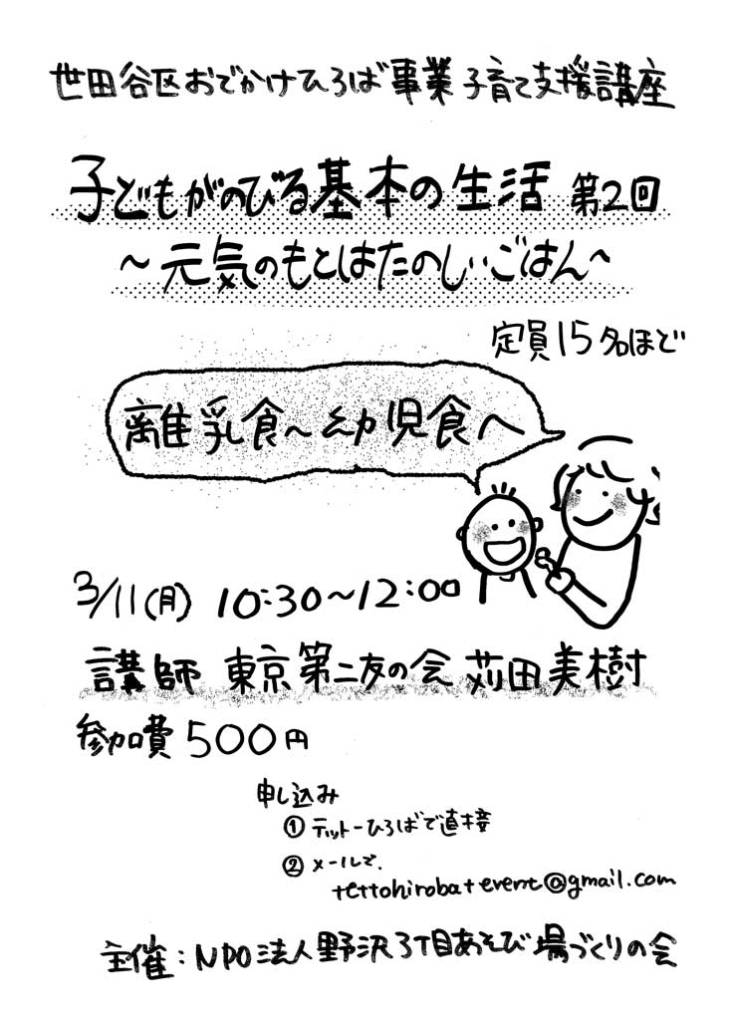 世田谷区おでかけひろば事業 子育て支援講座
子どもがのびる基本の生活 第2回
～元気のもとはたのしいごはん～
定員15名ほど
離乳食～幼児食へ
3/11(月) 10:30～12:00
講師 東京第二友の会 苅田美樹
参加費 500円
申し込み
① テットーひろばで直接
② メールで、
tettohiroba+event@gmail.com
主催：NPO法人野沢3丁目あそび場づくりの会